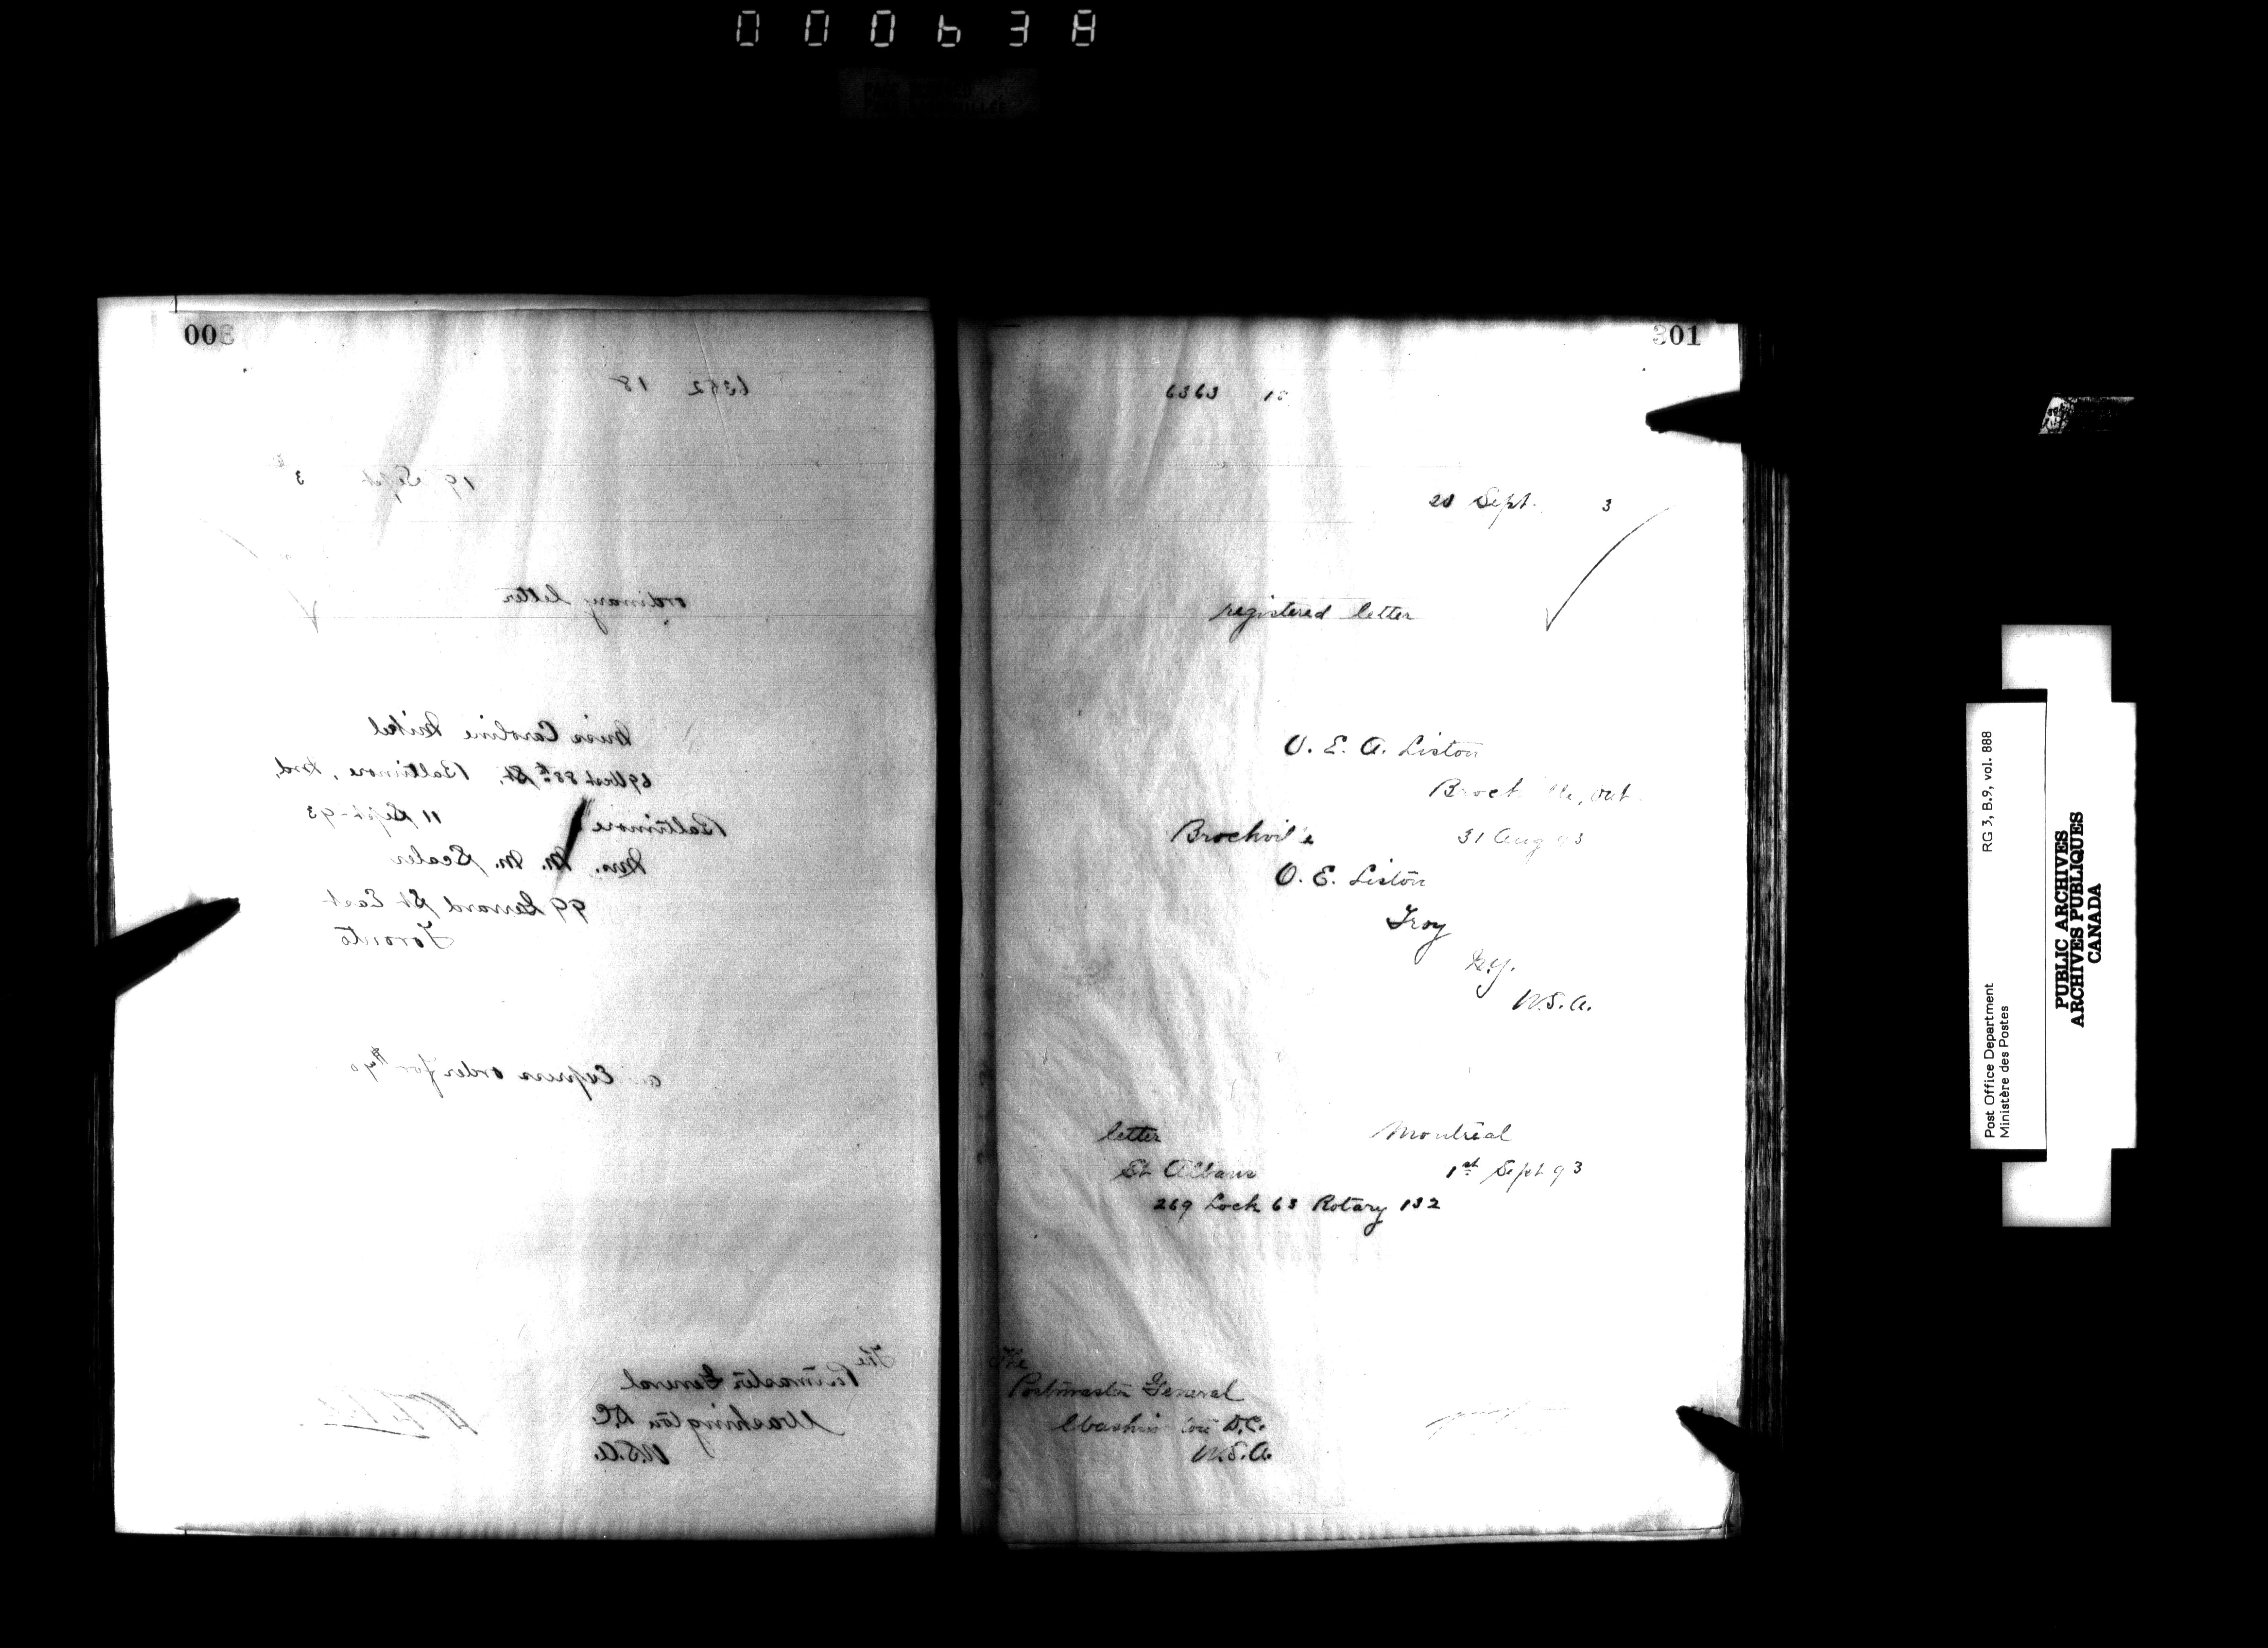 000638
300
6362 18
19 Sept 3
ordinary letter
Miss Caroline
69 West 88th St., Baltimore, Md,
Baltimore 11 Sept - 93
Mrs. M. M.
99 Gerrard St East
Toronto
an Express order for $40
The
Postmaster General
Washington D.C.
U.S.A.
301
6363 18
20 Sept. 3
registered letter
O. E. A. Liston
Brockville, Ont.
Brockville 31 Aug 93
O. E. Liston
Troy
N.Y.
U.S.A.
letter Montreal
St Albans 1st Sept 93
269 Lock 63 Rotary 132
The
Postmaster General
Washington D.C.
U.S.A.
Post Office Department
Ministère des Postes
RG 3, B.9, vol. 888
PUBLIC ARCHIVES
ARCHIVES PUBLIQUES
CANADA